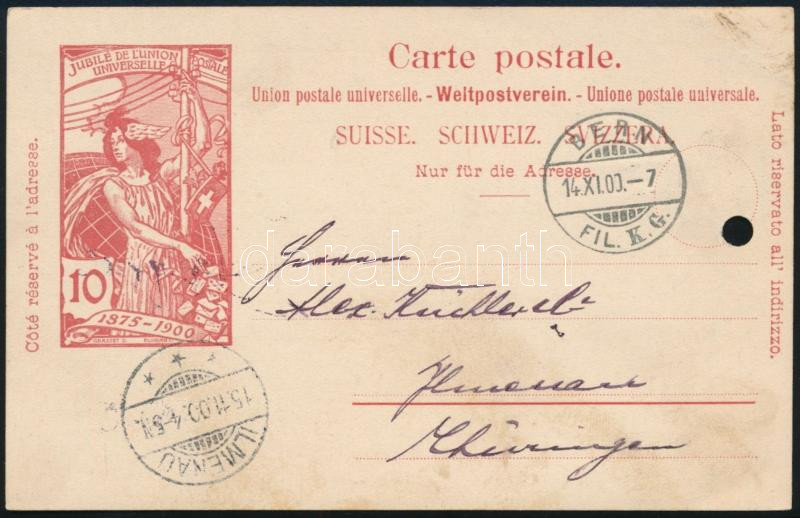 JUBILÉ DE L'UNION
UNIVERSELLE POSTALE
10
1875-1900
GRASSET D.
Côté réservé à l'adresse.
Carte postale.
Union postale universelle. - Weltpostverein. - Unione postale universale.
SUISSE. SCHWEIZ. SVIZZERA.
Nur für die Adresse.
Lato riservato all' indirizzo.
BERN
14.XI.00.-7
FIL. K.G.
Herren
Alex.
Ilmenau
Thüringen
15.11.00. 4-5N.
ILMENAU
darabanth